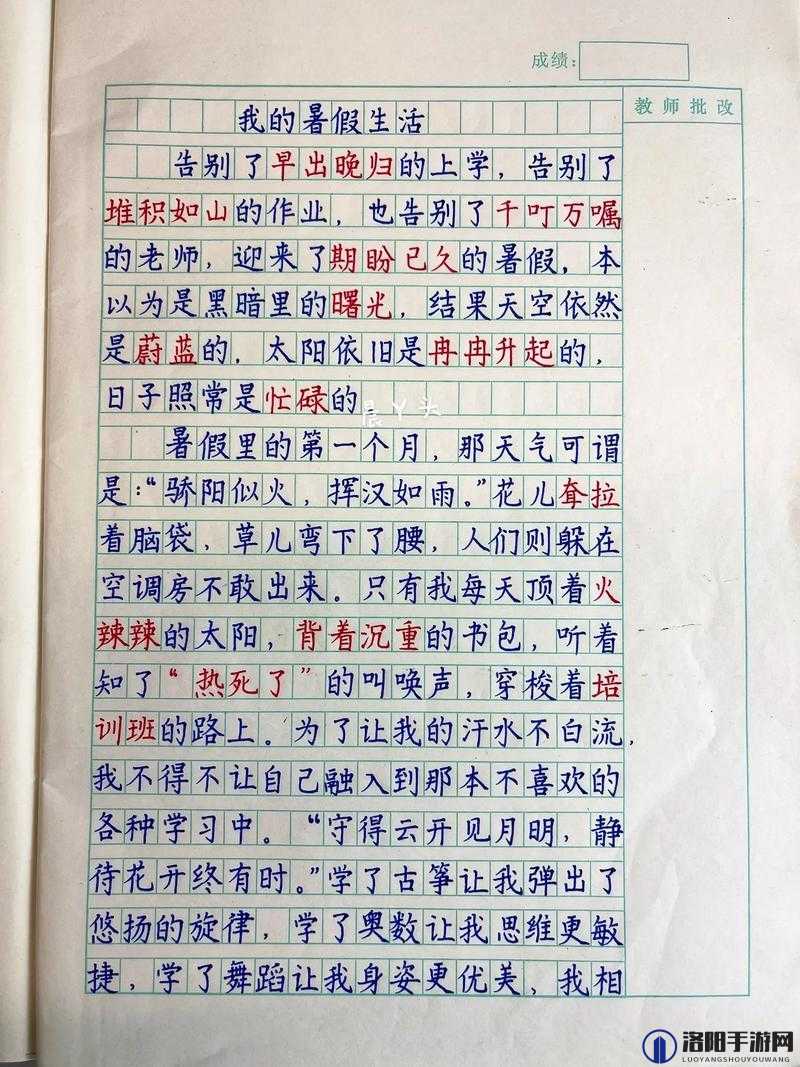 成绩：
教师批改
我的暑假生活
告别了早出晚归的上学，告别了
堆积如山的作业，也告别了千叮万嘱
的老师，迎来了期盼已久的暑假，本
以为是黑暗里的曙光，结果天空依然
是蔚蓝的，太阳依旧是冉冉升起的，
日子照常是忙碌的
晨丫头
暑假里的第一个月，那天气可谓
是：“骄阳似火，挥汉如雨。”花儿耷拉
着脑袋，草儿弯下了腰，人们则躲在
空调房不敢出来。只有我每天顶着火
辣辣的太阳，背着沉重的书包，听着
知了“热死了”的叫唤声，穿梭着培
训班的路上。为了让我的汗水不白流，
我不得不让自己融入到那本不喜欢的
各种学习中。“守得云开见月明，静
待花开终有时。”学了古筝让我弹出了
悠扬的旋律，学了奥数让我思维更敏
捷，学了舞蹈让我身姿更优美，我相
洛阳手游网
LUOYANGSHOUYOUWANG